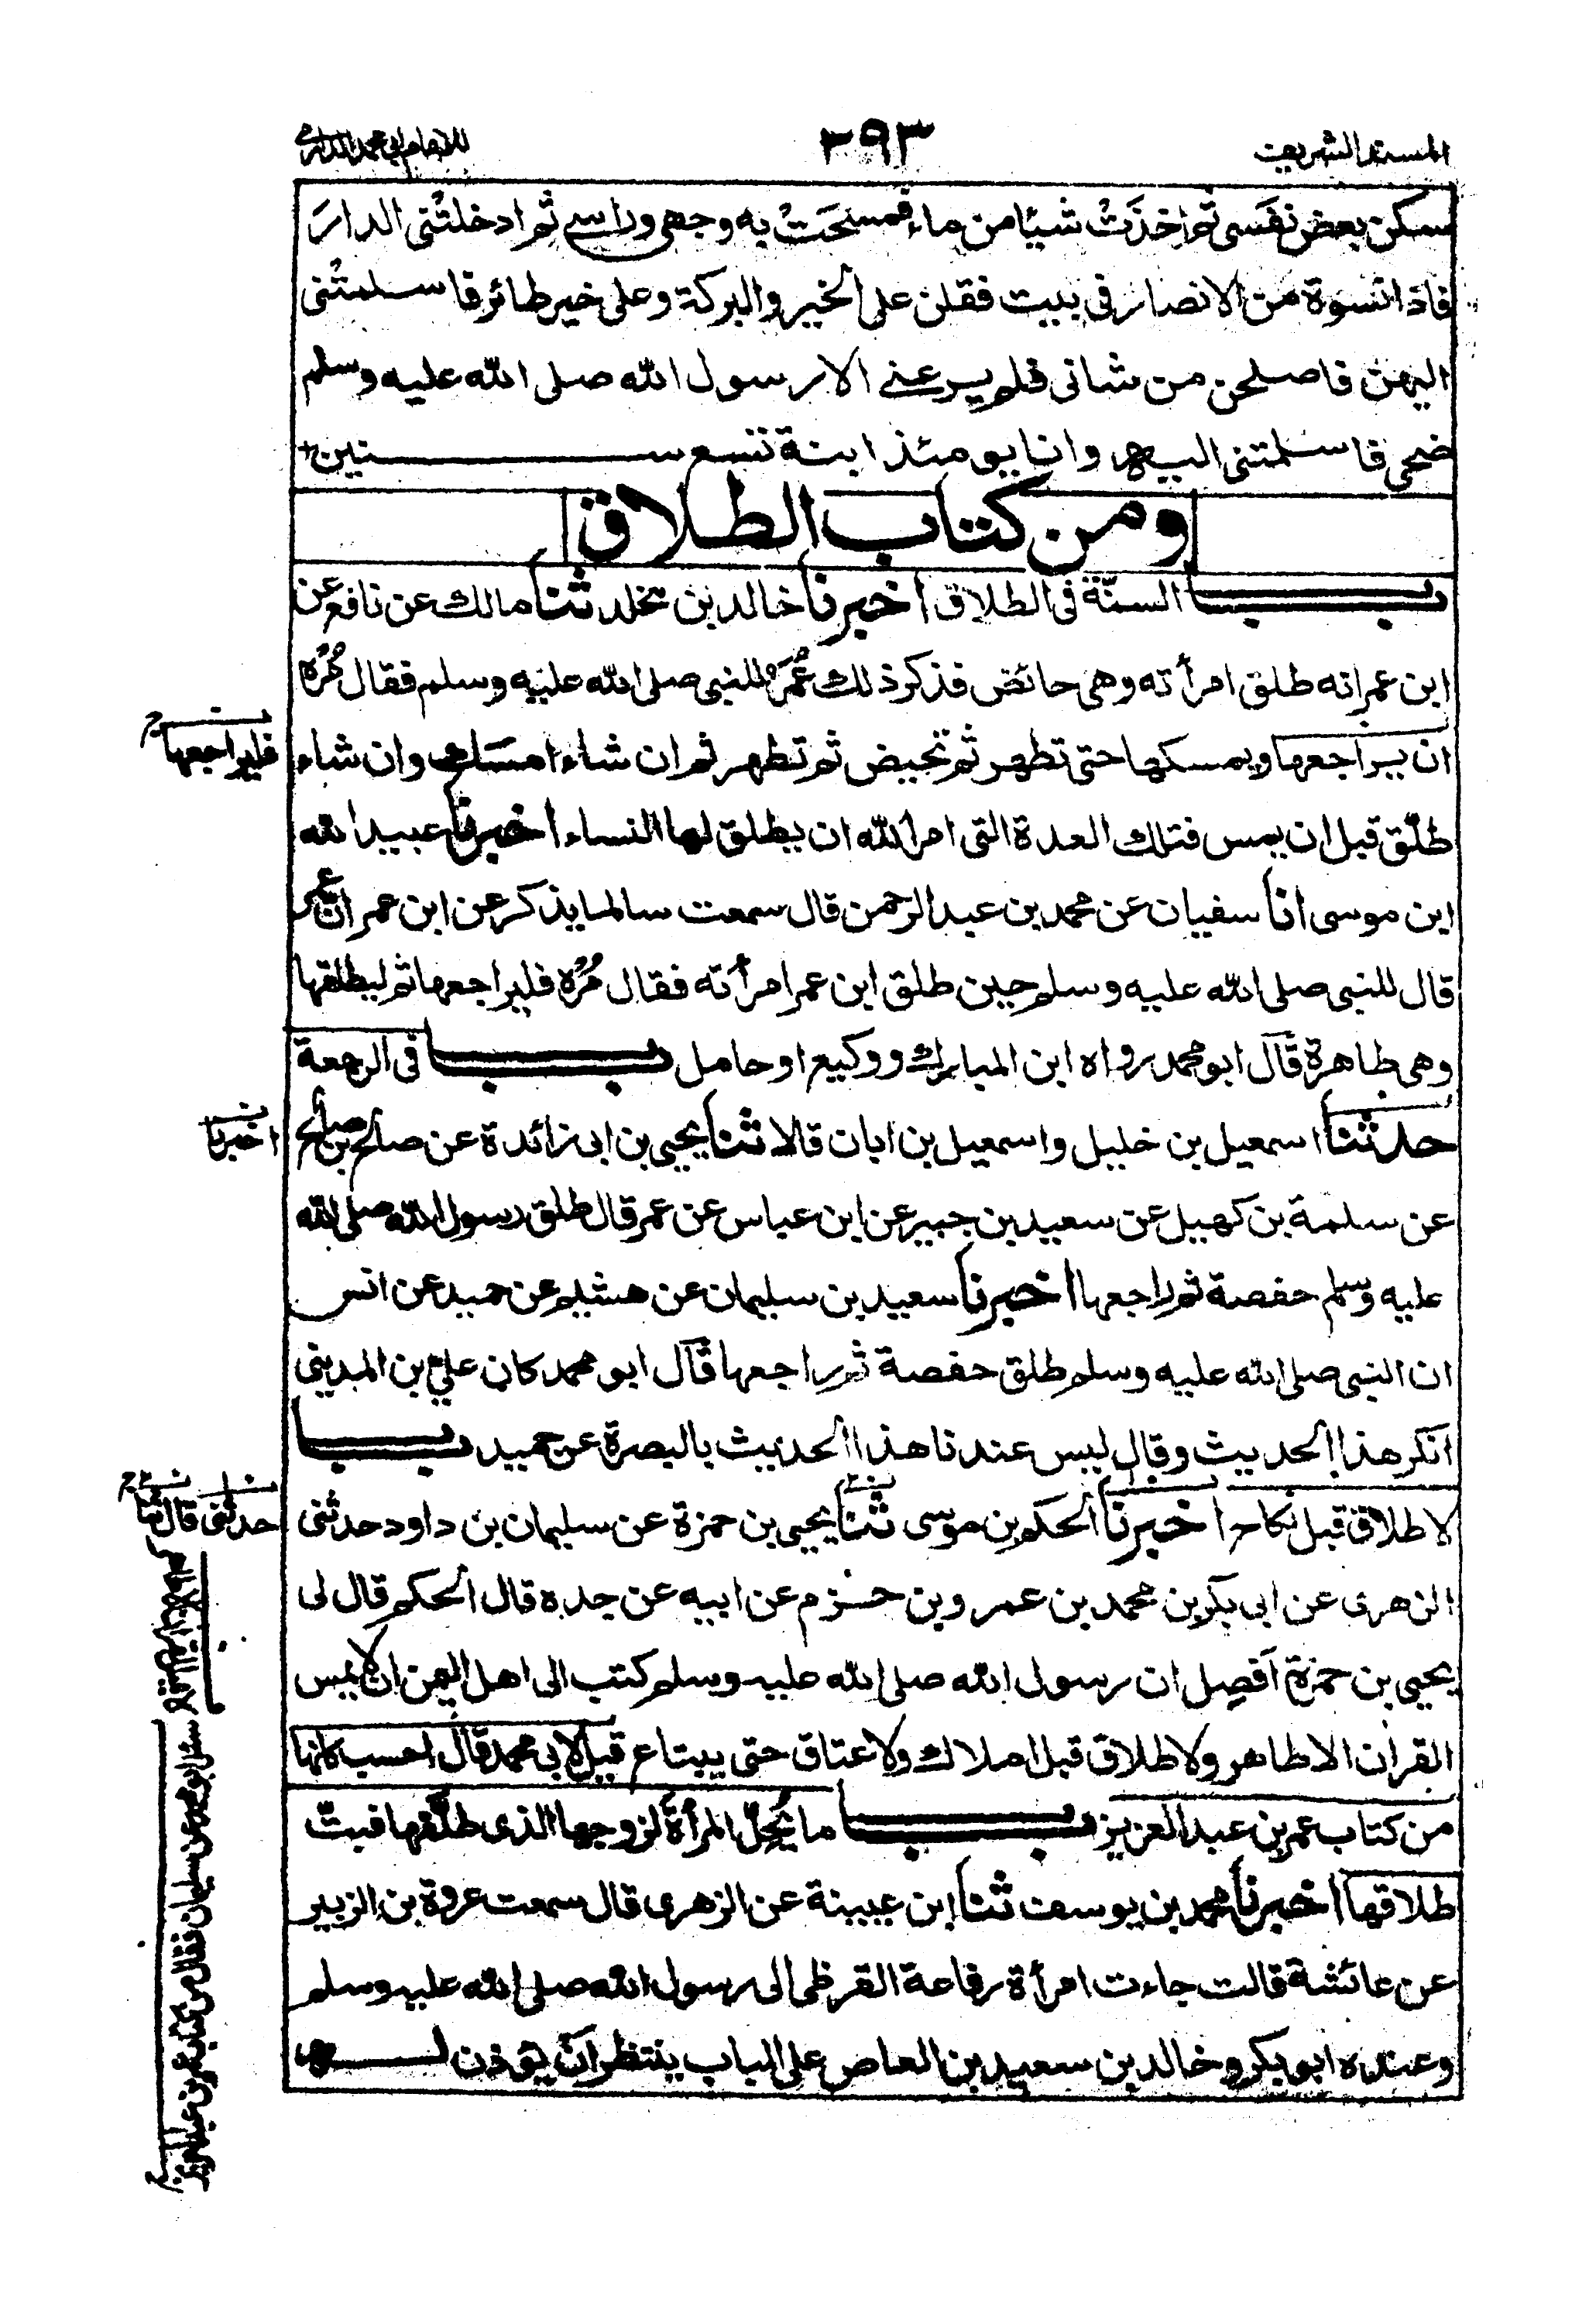 المسند الشريف ٢٩٣ للامام ابي محمد الدارمي
سكن بعض نفسي ثم اخذَتْ شيئا من ماء فمسحَتْ به وجهي وراسي ثم ادخلتْني الدارَ
فاذا نسوة من الانصار في بيت فقلن على الخير والبركة وعلى خير طائر فاسلمتْني
اليهن فاصلحن من شاني فلم يرعني الا رسول الله صلى الله عليه وسلم
ضحى فاسلمتني اليه وانا يومئذ ابنة تسع سنين
ومن كتاب الطلاق
باب السنّة في الطلاق اخبرنا خالد بن مخلد ثنا مالك عن نافع عن
ابن عمر انه طلق امرأته وهي حائض فذكر ذلك عُمَرُ للنبي صلى الله عليه وسلم فقال مُرْه
ان يراجعها ويمسكها حتى تطهر ثم تحيض ثم تطهر ثم ان شاء امسك وان شاء
فليراجعها
طلّق قبل ان يمس فتلك العدة التي امر الله ان يطلق لها النساء اخبرنا عبيد الله
ابن موسى انا سفيان عن محمد بن عبد الرحمن قال سمعت سالما يذكر عن ابن عمر ان عمر
قال للنبي صلى الله عليه وسلم حين طلق ابن عمر امرأته فقال مُرْه فليراجعها ثم ليطلقها
وهي طاهرة قال ابو محمد رواه ابن المبارك ووكيع او حامل باب في الرجعة
حدثنا اسمعيل بن خليل واسمعيل بن ابان قالا ثنا يحيى بن ابي زائدة عن صالح بن صالح
اخبرنا
عن سلمة بن كهيل عن سعيد بن جبير عن ابن عباس عن عمر قال طلق رسول الله صلى الله
عليه وسلم حفصة ثم راجعها اخبرنا سعيد بن سليمان عن هشيم عن حميد عن انس
ان النبي صلى الله عليه وسلم طلق حفصة ثم راجعها قال ابو محمد كان علي بن المديني
انكر هذا الحديث وقال ليس عندنا هذا الحديث بالبصرة عن حميد باب
لا طلاق قبل نكاح اخبرنا الحكم بن موسى ثنا يحيى بن حمزة عن سليمان بن داود حدثني
حدثني قال ثنا
الزهري عن ابي بكر بن محمد بن عمرو بن حزم عن ابيه عن جده قال الحكم قال لي
يحيى بن حمزة اَفصِل ان رسول الله صلى الله عليه وسلم كتب الى اهل اليمن ان لا يمس
القران الا طاهر ولا طلاق قبل املاك ولا عتاق حتى يبتاع قيل لابي محمد قال احسب كانها
من كتاب عمر بن عبد العزيز باب ما يُحِلّ المرأة لزوجها الذي طلّقها فبتّ
طلاقها اخبرنا محمد بن يوسف ثنا ابن عيينة عن الزهري قال سمعت عروة بن الزبير
عن عائشة قالت جاءت امرأة رفاعة القرظي الى رسول الله صلى الله عليه وسلم
وعنده ابو بكر وخالد بن سعيد بن العاص على الباب ينتظر ان يؤذن له
سئل ابو محمد عن سليمان فقال من كتاب عمر بن عبد العزيز